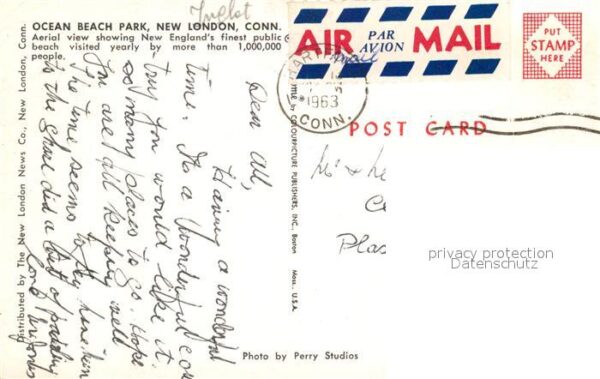 Twplot
OCEAN BEACH PARK, NEW LONDON, CONN.
Aerial view showing New England's finest public
beach visited yearly by more than 1,000,000
people.
AIR PAR AVION MAIL
PUT
STAMP
HERE
HARTF
1963
CONN.
POST CARD
Distributed by The New London News Co., New London, Conn.
by COLOURPICTURE PUBLISHERS, INC., Boston Mass. U.S.A.
Dear All,
Having a wonderful
time. It's a Wonderful co
try you would like it.
so many places to go. Hope
you are all keeping well
The time seems to fly
is the
Mr &
Plas
privacy protection
Datenschutz
Photo by Perry Studios